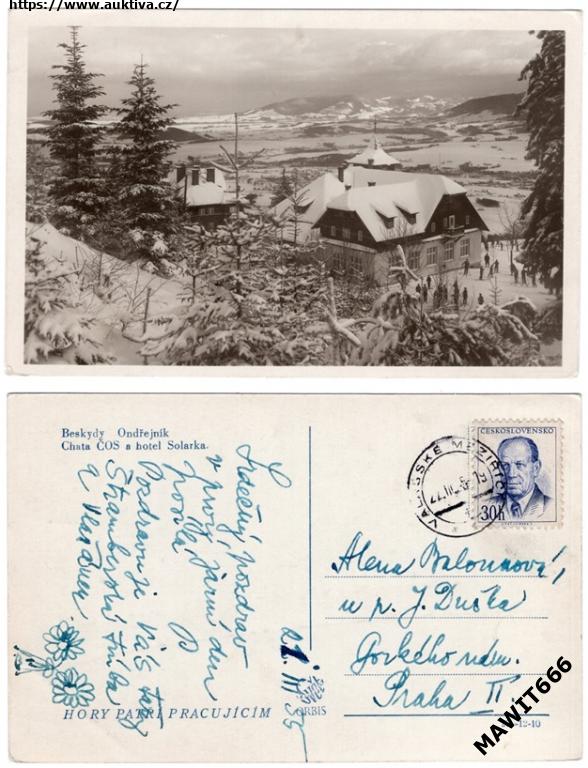 https://www.auktiva.cz/
Beskydy Ondřejník
Chata ČOS a hotel Solarka.
Srdečný pozdrav
v prvý jarní den
posílá
Pozdravuje Vás také
Štramberská trúba
21. III. 55
HORY PATŘÍ PRACUJÍCÍM
ORBIS
ČESKOSLOVENSKO
30h
VALAŠSKÉ MEZIŘÍČÍ
Alena Balounová,
u p. J. Dučka
Gorkého nám.
Praha II.
MAWIT666